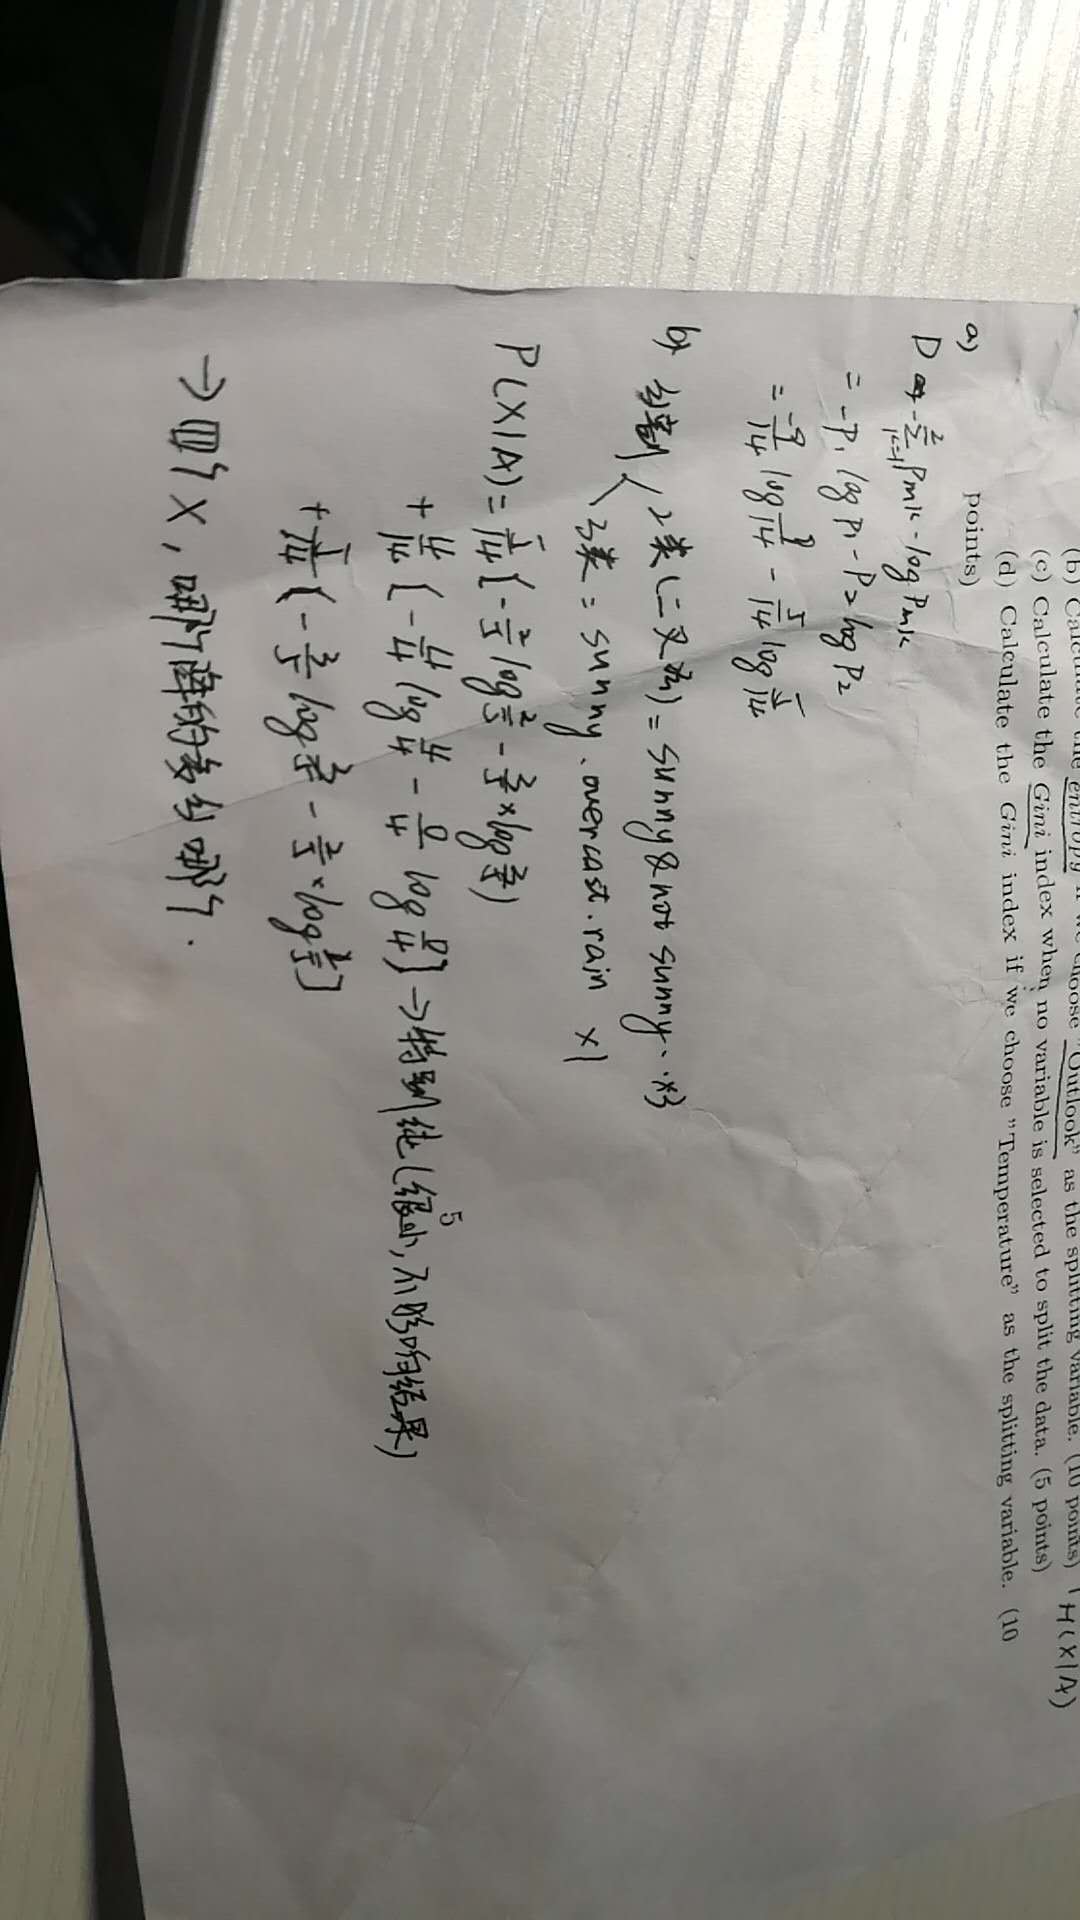 (b) Calculate the entropy if we choose "Outlook" as the splitting variable. (10 points) H(X|A)
(c) Calculate the Gini index when no variable is selected to split the data. (5 points)
(d) Calculate the Gini index if we choose "Temperature" as the splitting variable. (10
points)
a)
D = -∑²ₖ₌₁ Pmk · log Pmk
= -P₁ log P₁ - P₂ log P₂
= -9/14 log 9/14 - 5/14 log 5/14
b) 分割 2类(二叉树) = sunny & not sunny. ×3
3类 = sunny、overcast. rain ×1
P(X|A) = 5/14 (-2/5 log 2/5 - 3/5 × log 3/5)
+ 4/14 [-4/4 log 4/4 - 0/4 log 0/4] → 特别纯(很小,不影响结果)
+ 5/14 [-3/5 log 3/5 - 2/5 × log 2/5]
→ 四个X,哪个降的多分哪个.
5